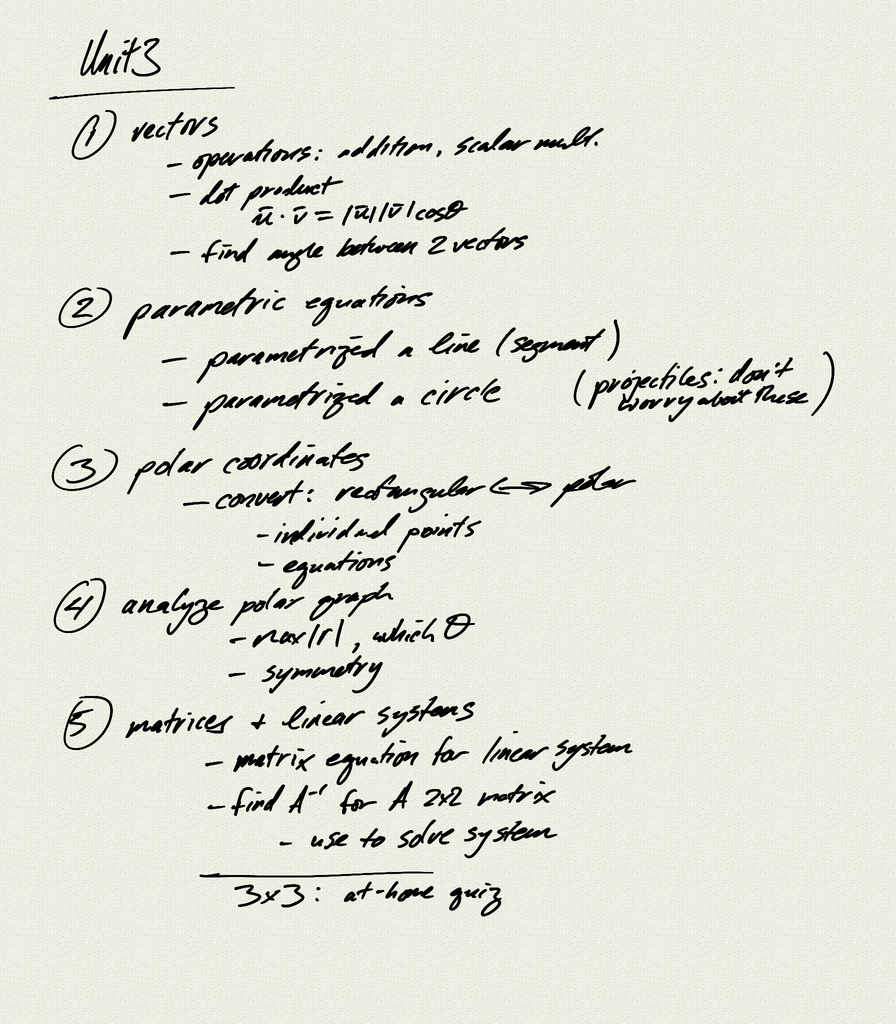 Unit 3
① vectors
- operations: addition, scalar mult.
- dot product
ū · v̄ = |ū||v̄| cosθ
- find angle between 2 vectors
② parametric equations
- parametrized a line (segment)
- parametrized a circle (projectiles: don't worry about these)
③ polar coordinates
- convert: rectangular <-> polar
- individual points
- equations
④ analyze polar graph
- max|r|, which θ
- symmetry
⑤ matrices + linear systems
- matrix equation for linear system
- find A⁻¹ for A 2x2 matrix
- use to solve system
3x3: at-home quiz